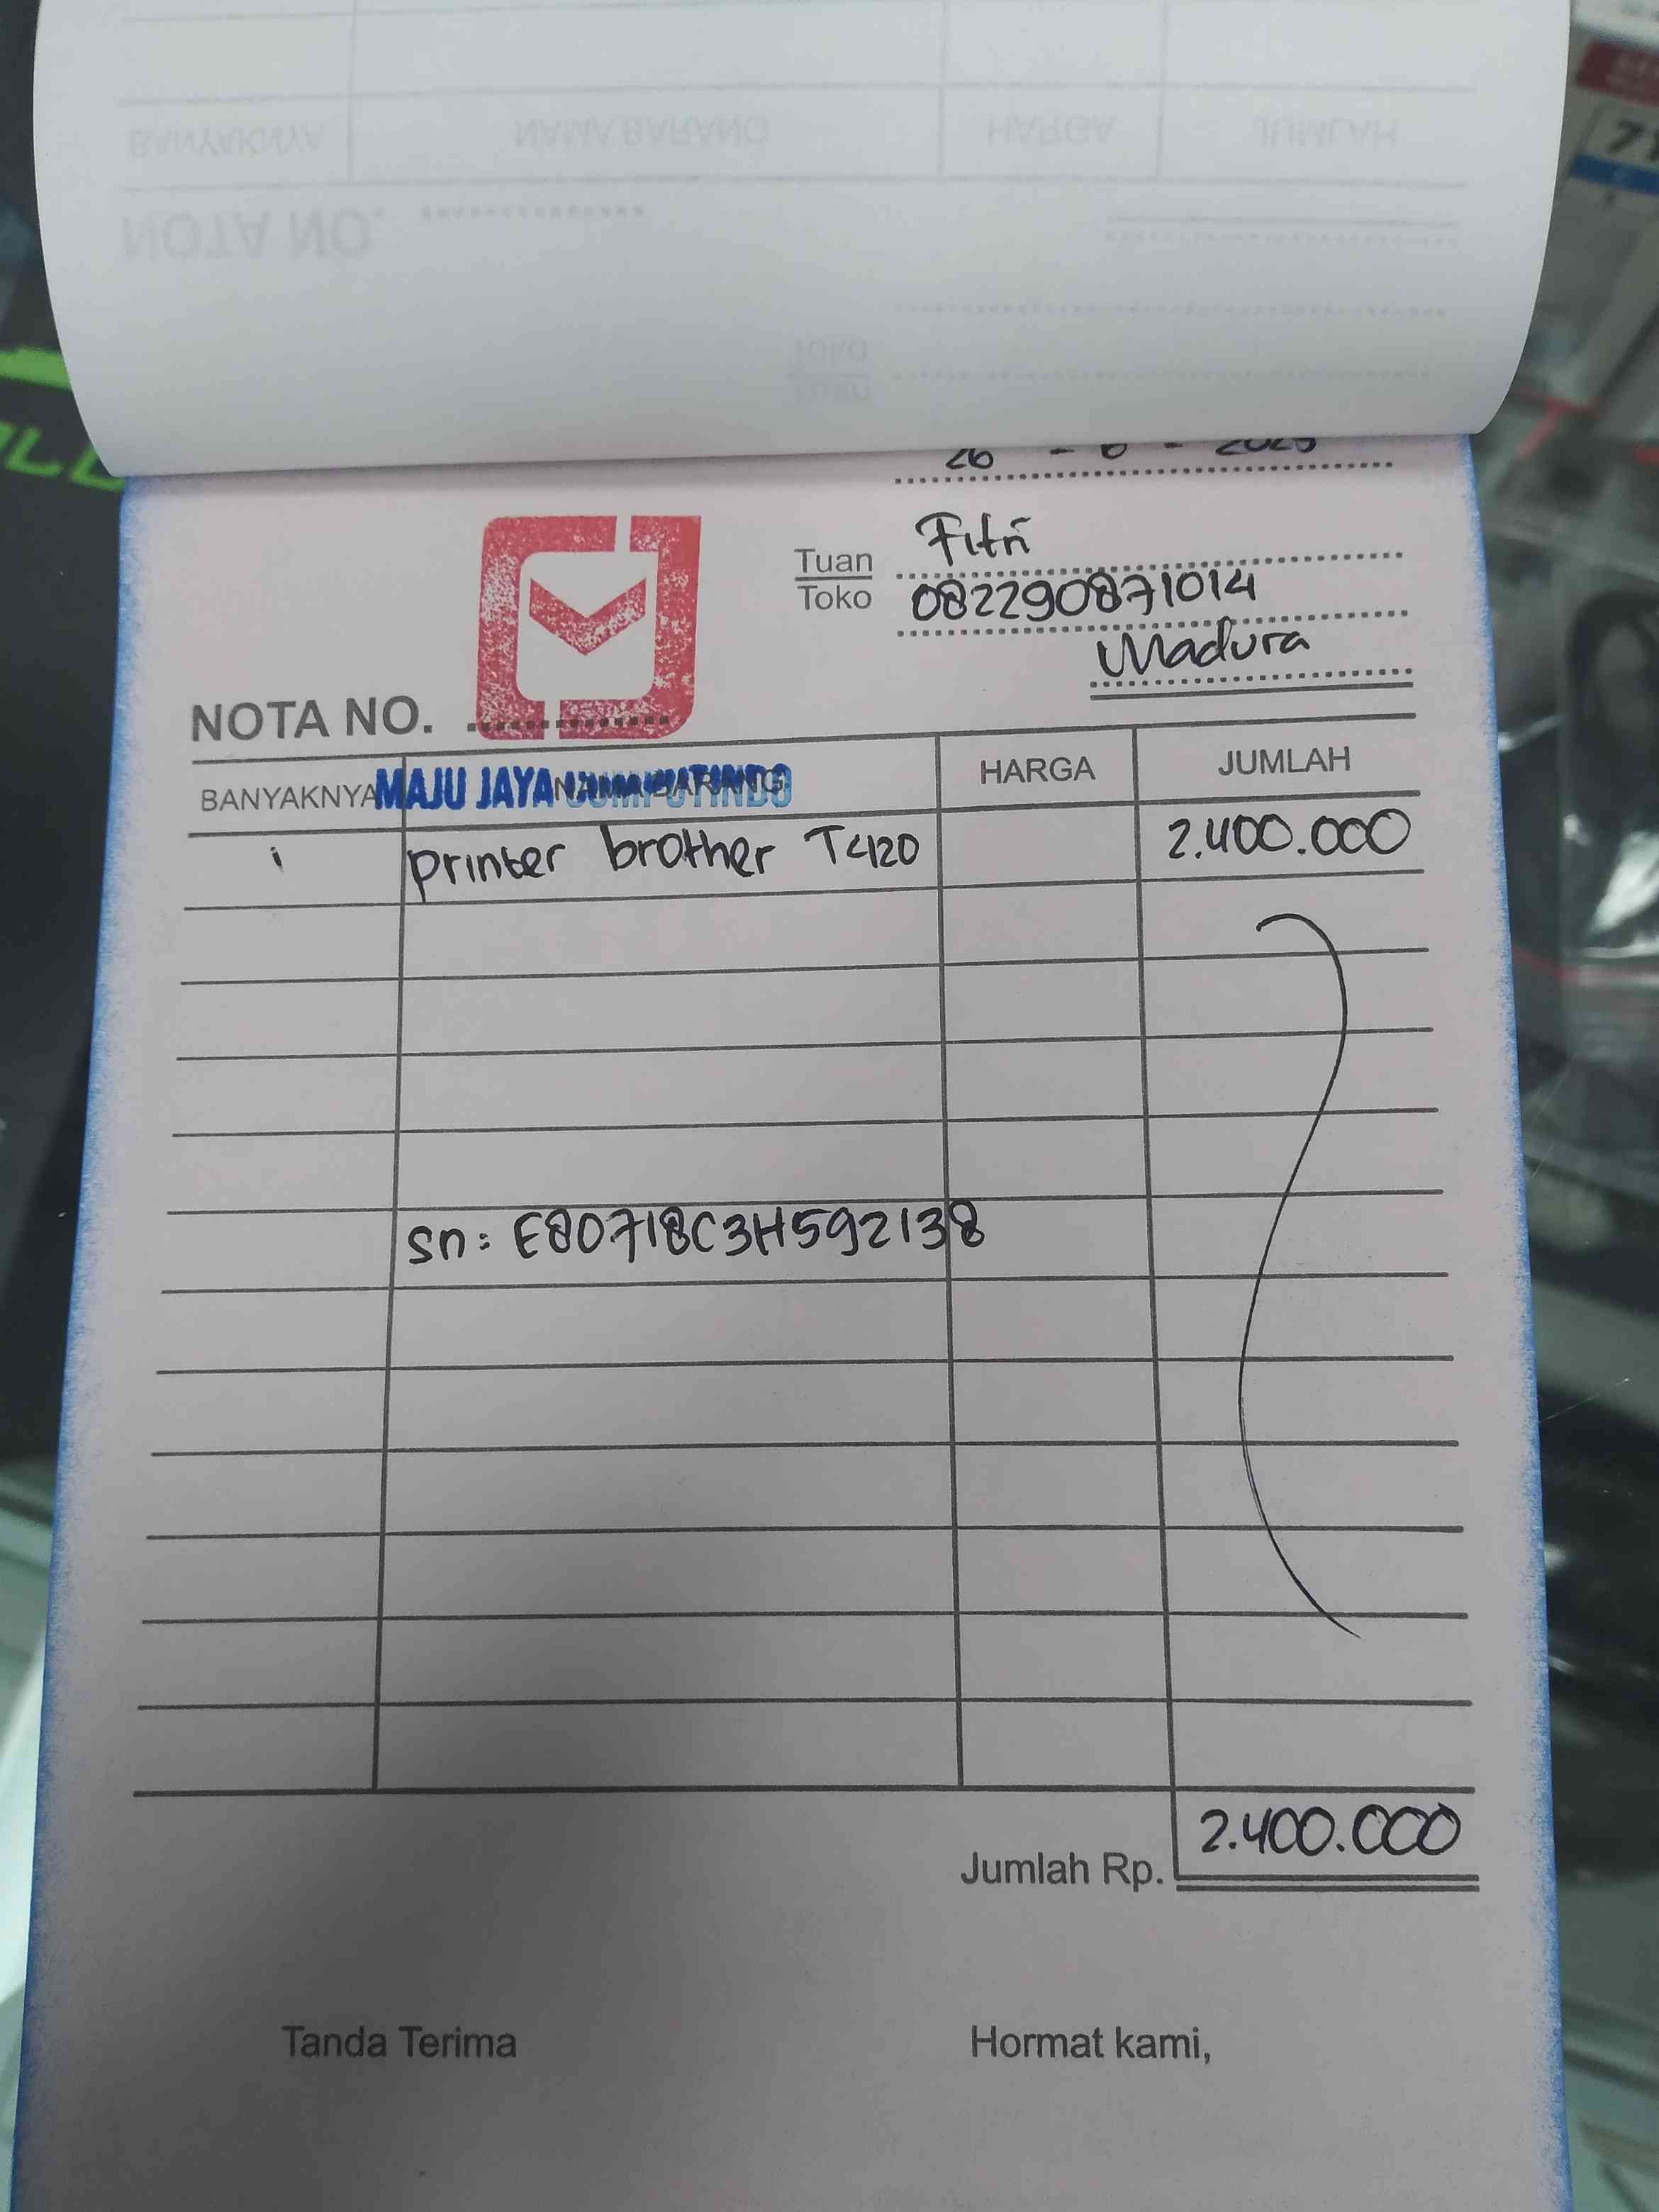 26 - 6 - 2025
Tuan
Toko
Fitri
082290871014
Madura
NOTA NO.
MAJU JAYA COMPUTINDO
BANYAKNYA NAMA BARANG HARGA JUMLAH
1 printer brother T420 2.400.000
sn: E80718C3H592138
Jumlah Rp. 2.400.000
Tanda Terima Hormat kami,